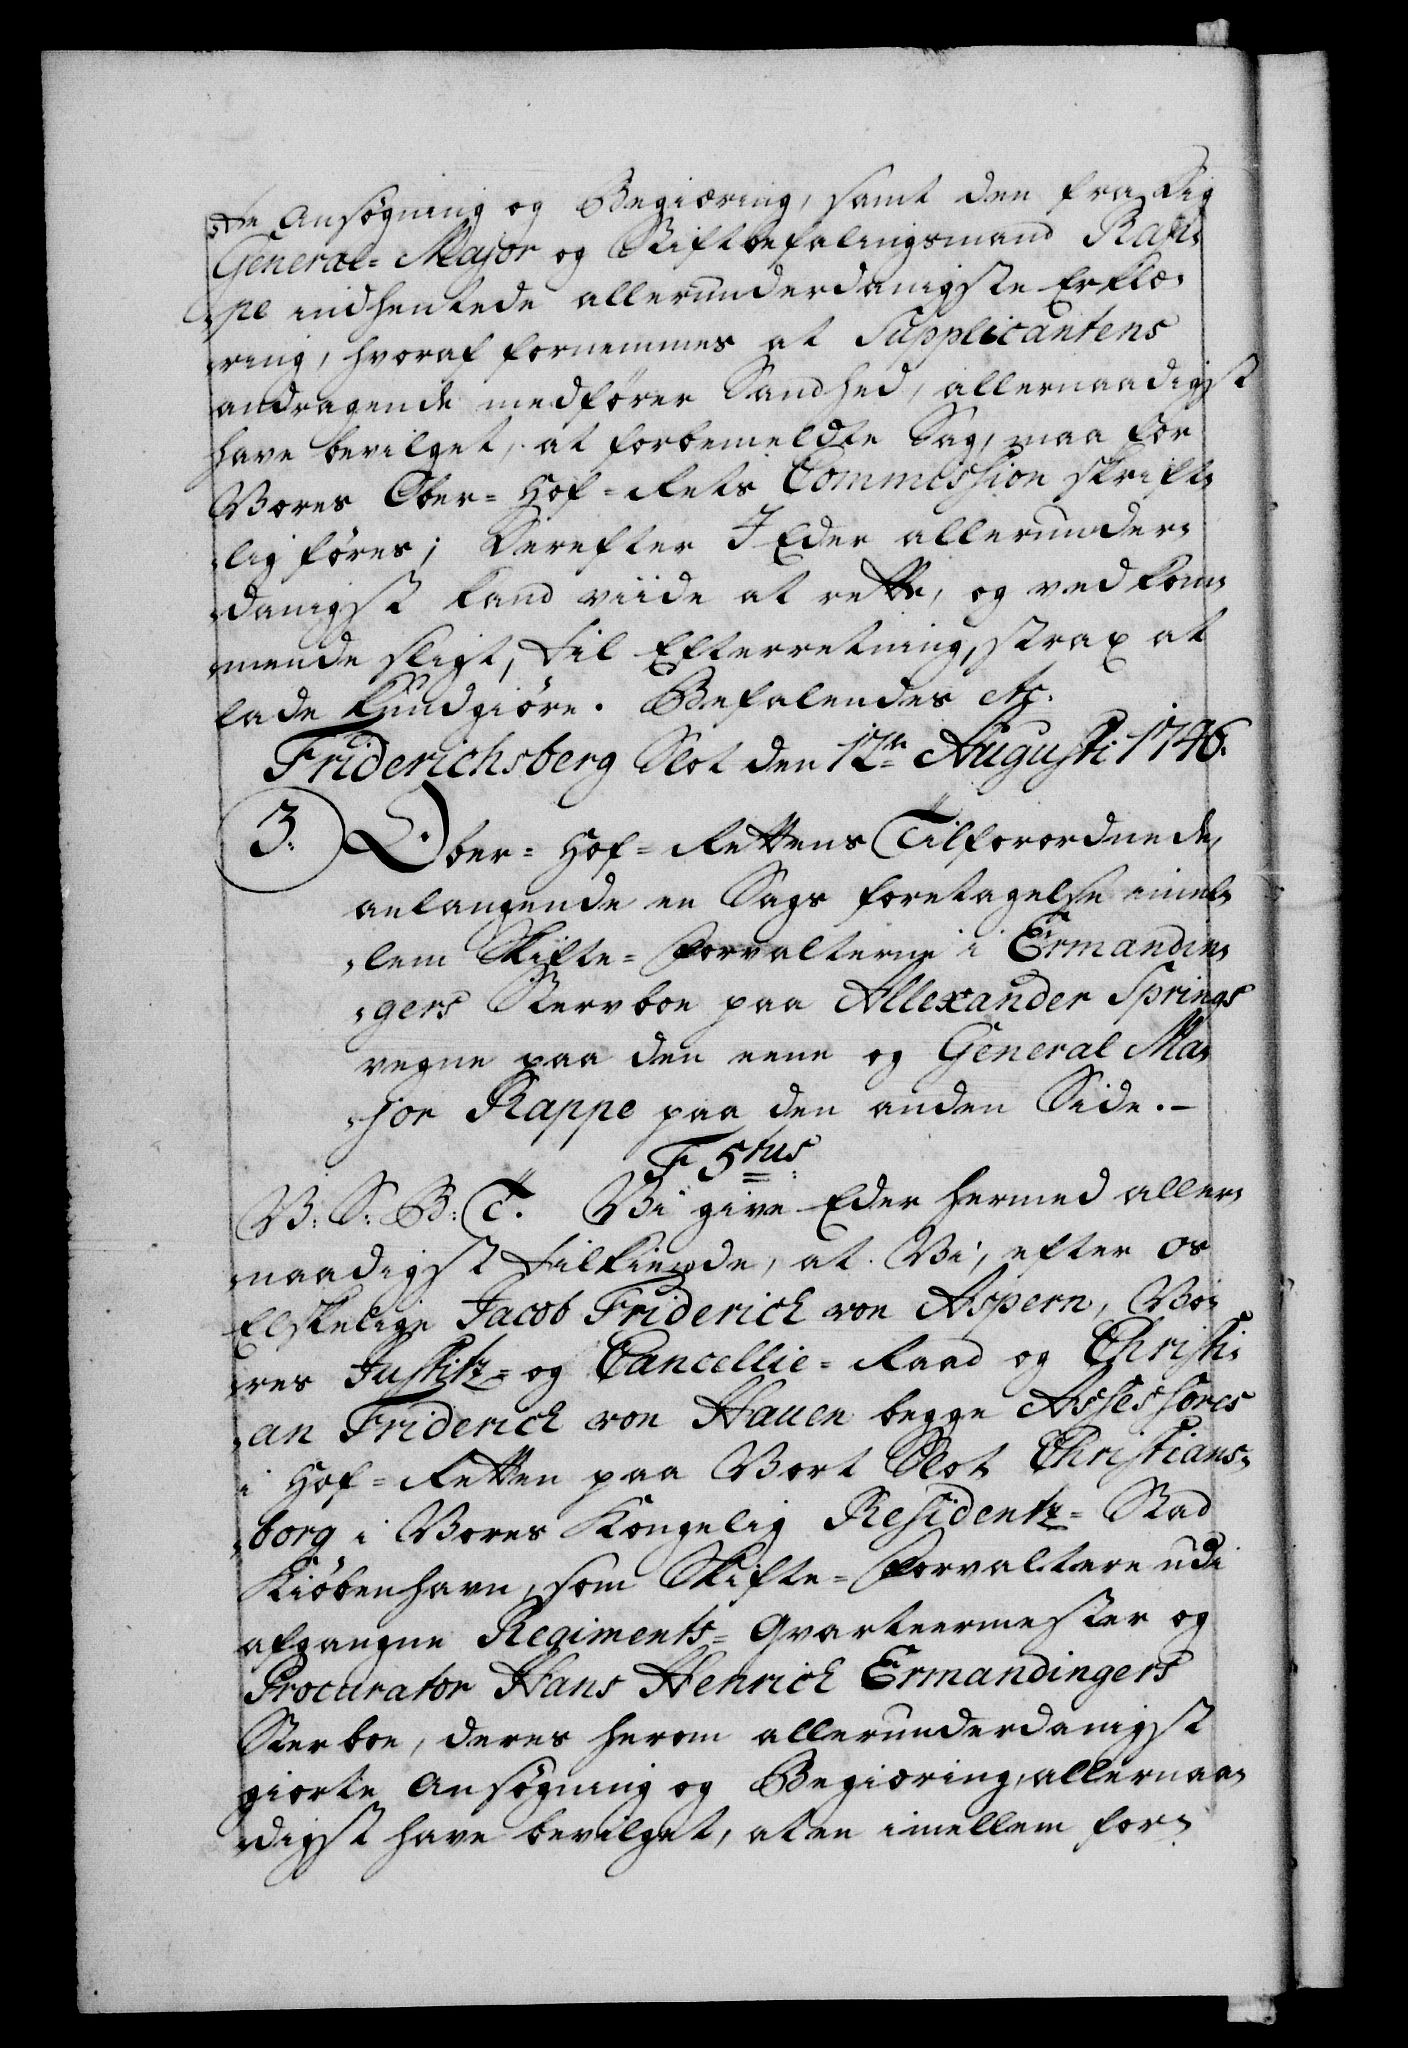 te Ansøgning og Begiæring, samt den fra Sig
General-Major og Stiftbefalingsmand Rap-
pe indhentede allerunderdanigste Erklæ-
ring, hvoraf fornemmes at Supplicantens
andragende medfører Sandhed, allernaadigst
have bevilget, at forbemeldte Sag, maa for
Vores Ober-Hof-Rets Commission skrift-
lig føres; Derefter I Eder allerunder-
danigst kand viide at rette, og vedkom-
mende sligt, til Efterretning, strax at
lade kundgiøre. Befalendes etc.
Friderichsberg Slot den 12te Augusti 1746.
3. Ober-Hof-Rettens Tilforordnede,
anlangende en Sags foretagelse imel-
lem Skifte-Forvalterne i Ermandin-
gers Stervboe paa Allexander Springs
vegne paa den eene og General Ma-
jor Rappe paa den anden Side.-
F 5tus
V: S: B: T. Vi give Eder hermed aller-
naadigst tilkiende, at Vi, efter os
Elskelige Jacob Friderich von Aspern, Vo-
res Justitz- og Cancellie-Raad og Christi-
an Friderich von Hauen begge Assessores
i Hof-Retten paa Vort Slot Christians-
borg i Vores Kongelig Residentz-Stad
Kiøbenhavn, som Skifte-Forvaltere udi
afgangne Regiments-Qvarteermester og
Procurator Hans Henrich Ermandingers
Sterboe, deres herom allerunderdanigst
giorte Ansøgning og Begiæring, allernaa-
digst have bevilget, at en imellem for-